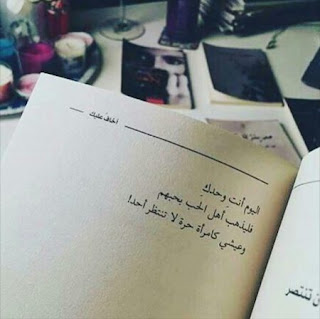 أخاف عليك
اليوم أنتِ وحدكِ
فليذهب أهل الحب بحبهم
وعيشي كامرأة حرة لا تنتظر أحدا!
ن تنتصر